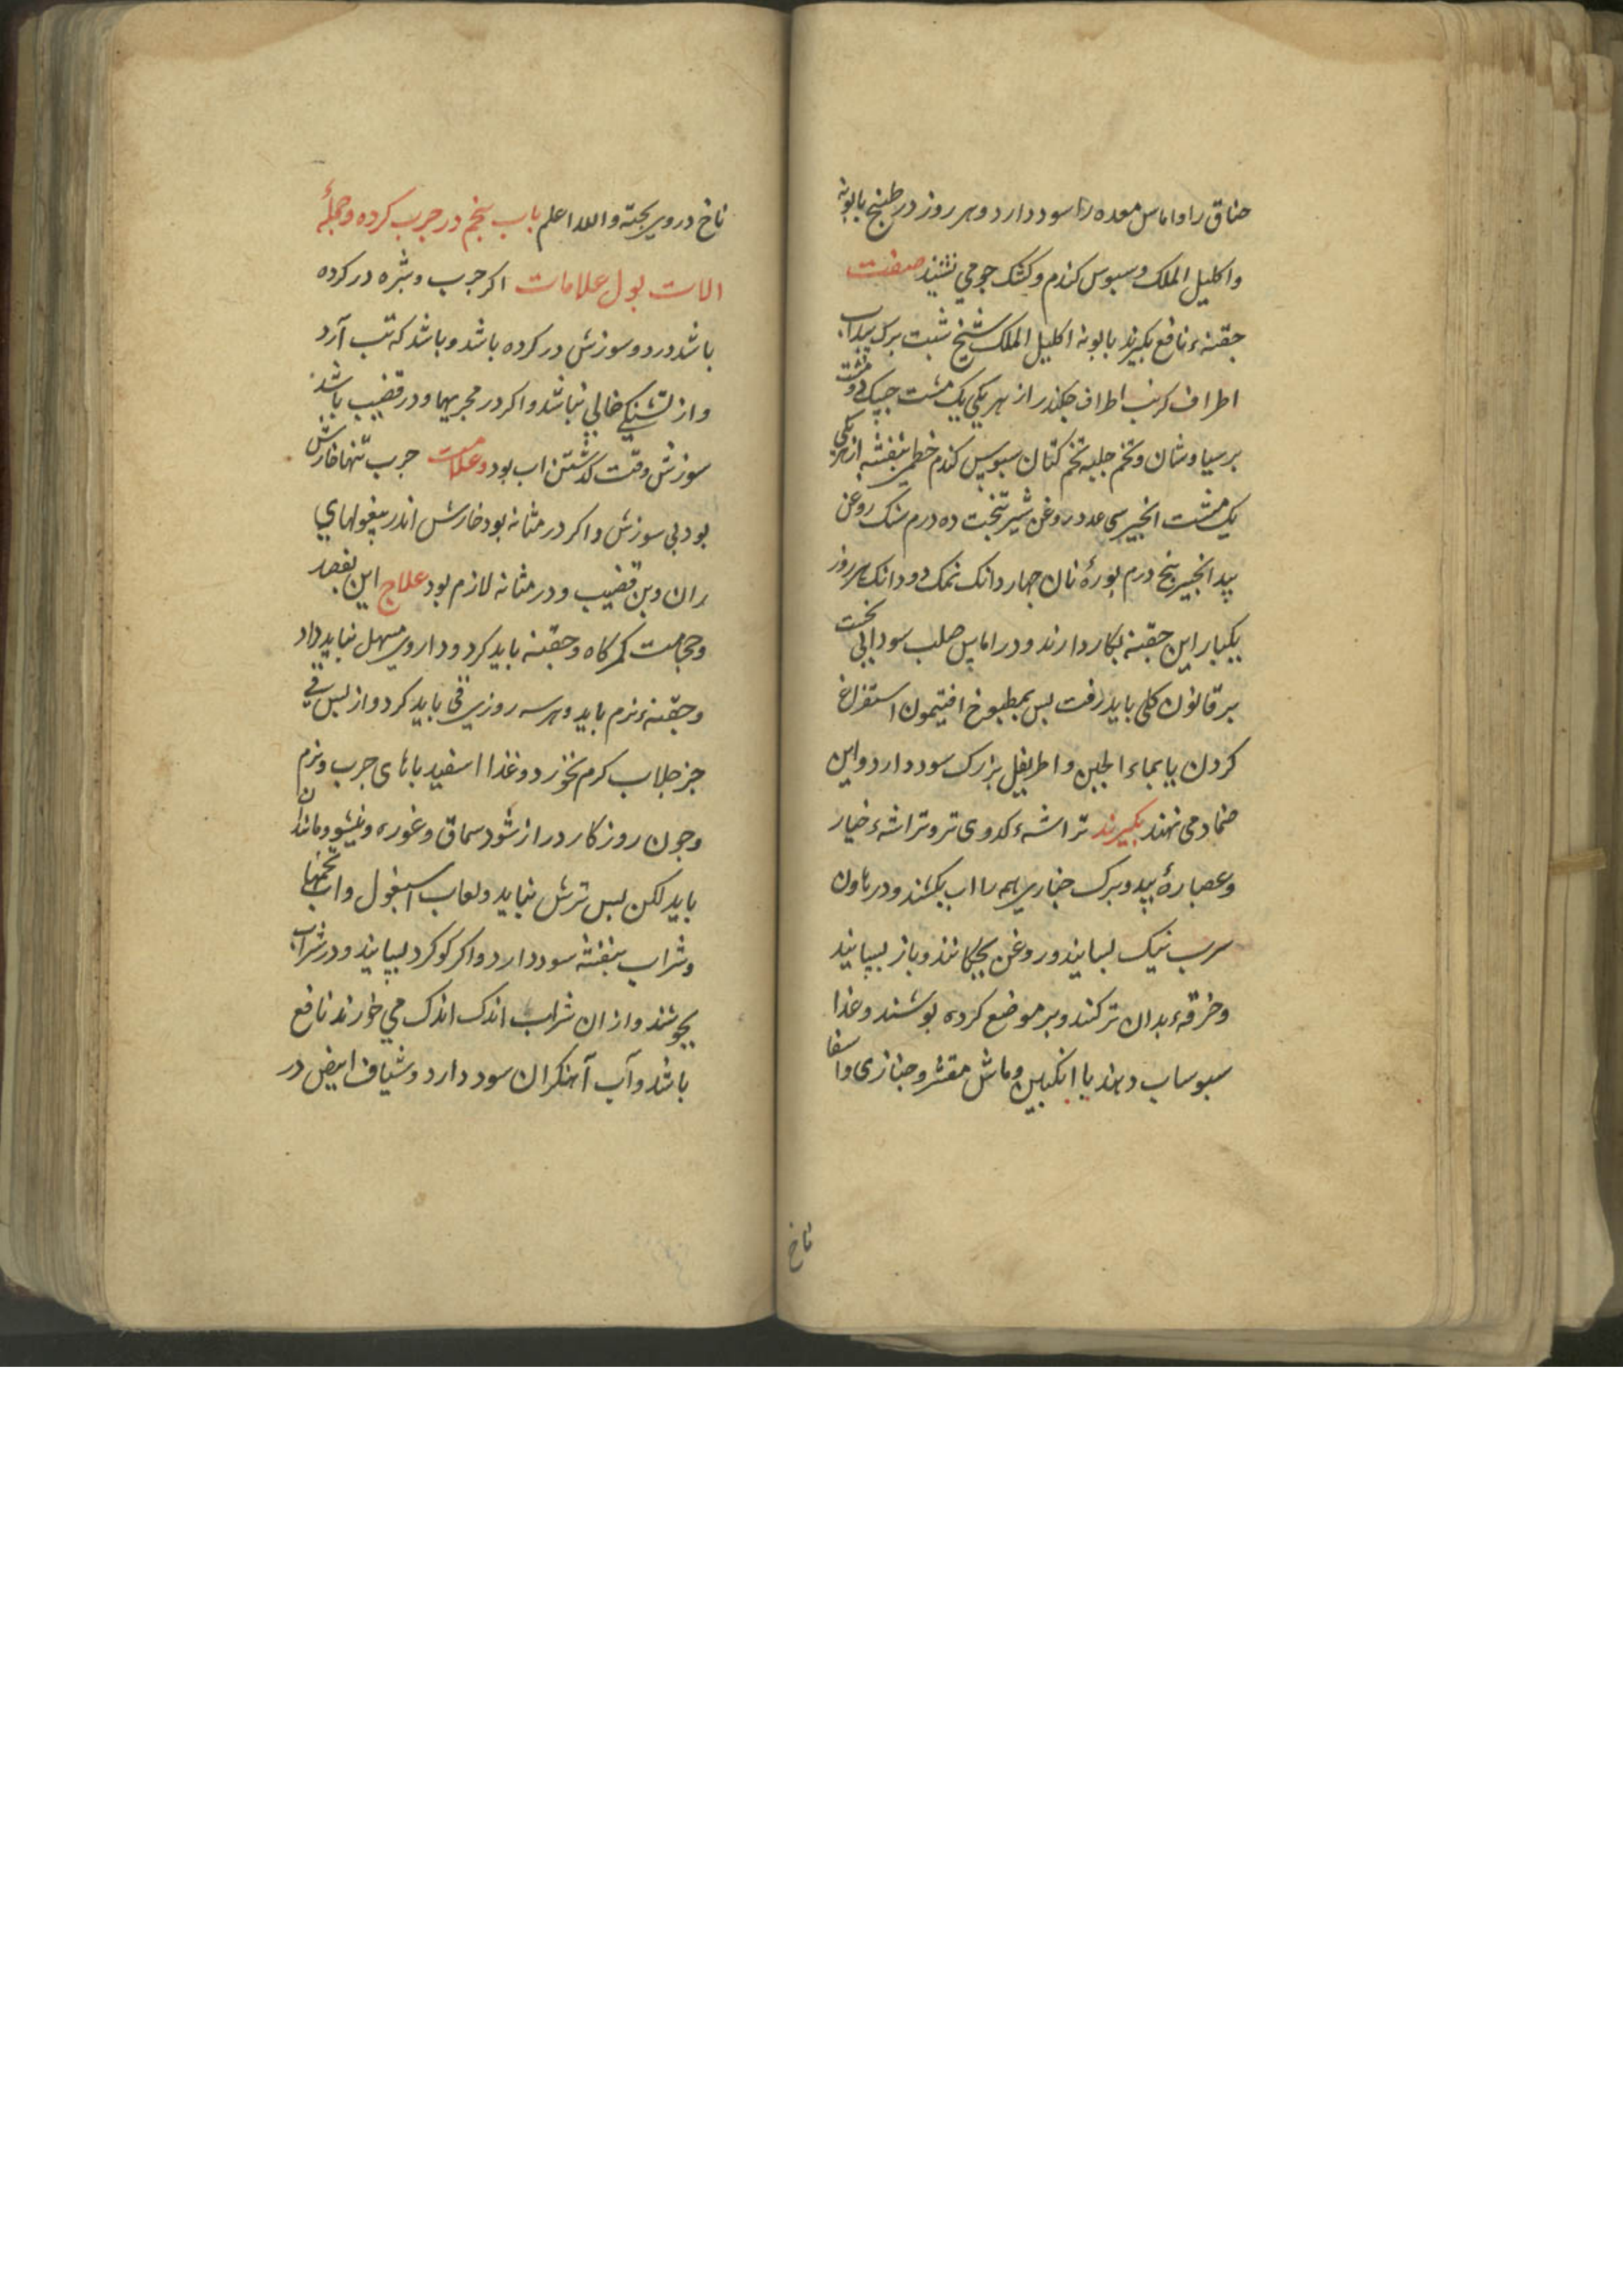 خناق را و اماس معده را سود دارد و هر روز در طبیخ بابونه
و اکلیل الملک و سبوس کندم و کشک جو می نشیند صفت
حقنهٔ نافع بکیرند بابونه اکلیل الملک شیخ شبت برک
اطراف کرنب اطراف جکندر از هر یکی یک مشت دو مشت
برسیاوشان و تخم حلبه تخم کتان سبوس کندم خطمی بنفشه از هر یکی
یک مشت انجیر سی عدد روغن شیربخت ده درم سنک روغن
بید انجیر بنج درم بورهٔ نان جهار دانک نمک دو دانک هر روز
یکبار این حقنه بکار دارند و در اماس صلب سودایی نخست
بر قانون کلی باید رفت بس بمطبوخ افتیمون استفراغ
کردن یا بماء الجبن و اطریفل بزرک سود دارد و این
ضماد می نهند بکیرند تراشهٔ کدوی تر و تراشهٔ خیار
و عصارهٔ بید و برک خبازی همه را اب بکشند و در هاون
سرب نیک بسایند و روغن بجکانند و باز بسایند
و خرقهٔ بدان تر کنند و بر موضع کرده بوشند و غذا
سبوساب دهند با انکبین و ماش مقشر و خبازی و اسفا
ناخ
ناخ در وی بخته و الله اعلم باب بنجم در جرب کرده و جملهٔ
الات بول علامات اکر جرب و بثره در کرده
باشد درد و سوزش در کرده باشد و باشد که تب آرد
و از تشنکی خالی نباشد و اکر در مجریها و در قضیب باشد
سوزش وقت کذشتن اب بود و علامت جرب تنها خارش
بود بی سوزش و اکر در مثانه بود خارش اندر بیغولهای
ران و بن قضیب و در مثانه لازم بود علاج این بفصد
و حجامت کمرکاه و حقنه باید کرد و داروی مسهل نباید داد
و حقنهٔ نرم باید و هر سه روزی قی باید کرد و از بس قی
جز جلاب کرم نخورد و غذا اسفیدباهای جرب و نرم
و جون روزکار دراز شود سماق و غوره و نیشو و مانند ان
باید لکن بس ترش نباید و لعاب اسبغول و اب تخمها
و شراب بنفشه سود دارد و اکر کوکرد بسایند و در شراب
بجوشند و از ان شراب اندک اندک می خورند نافع
باشد و آب آهنکران سود دارد و شیاف ابیض در